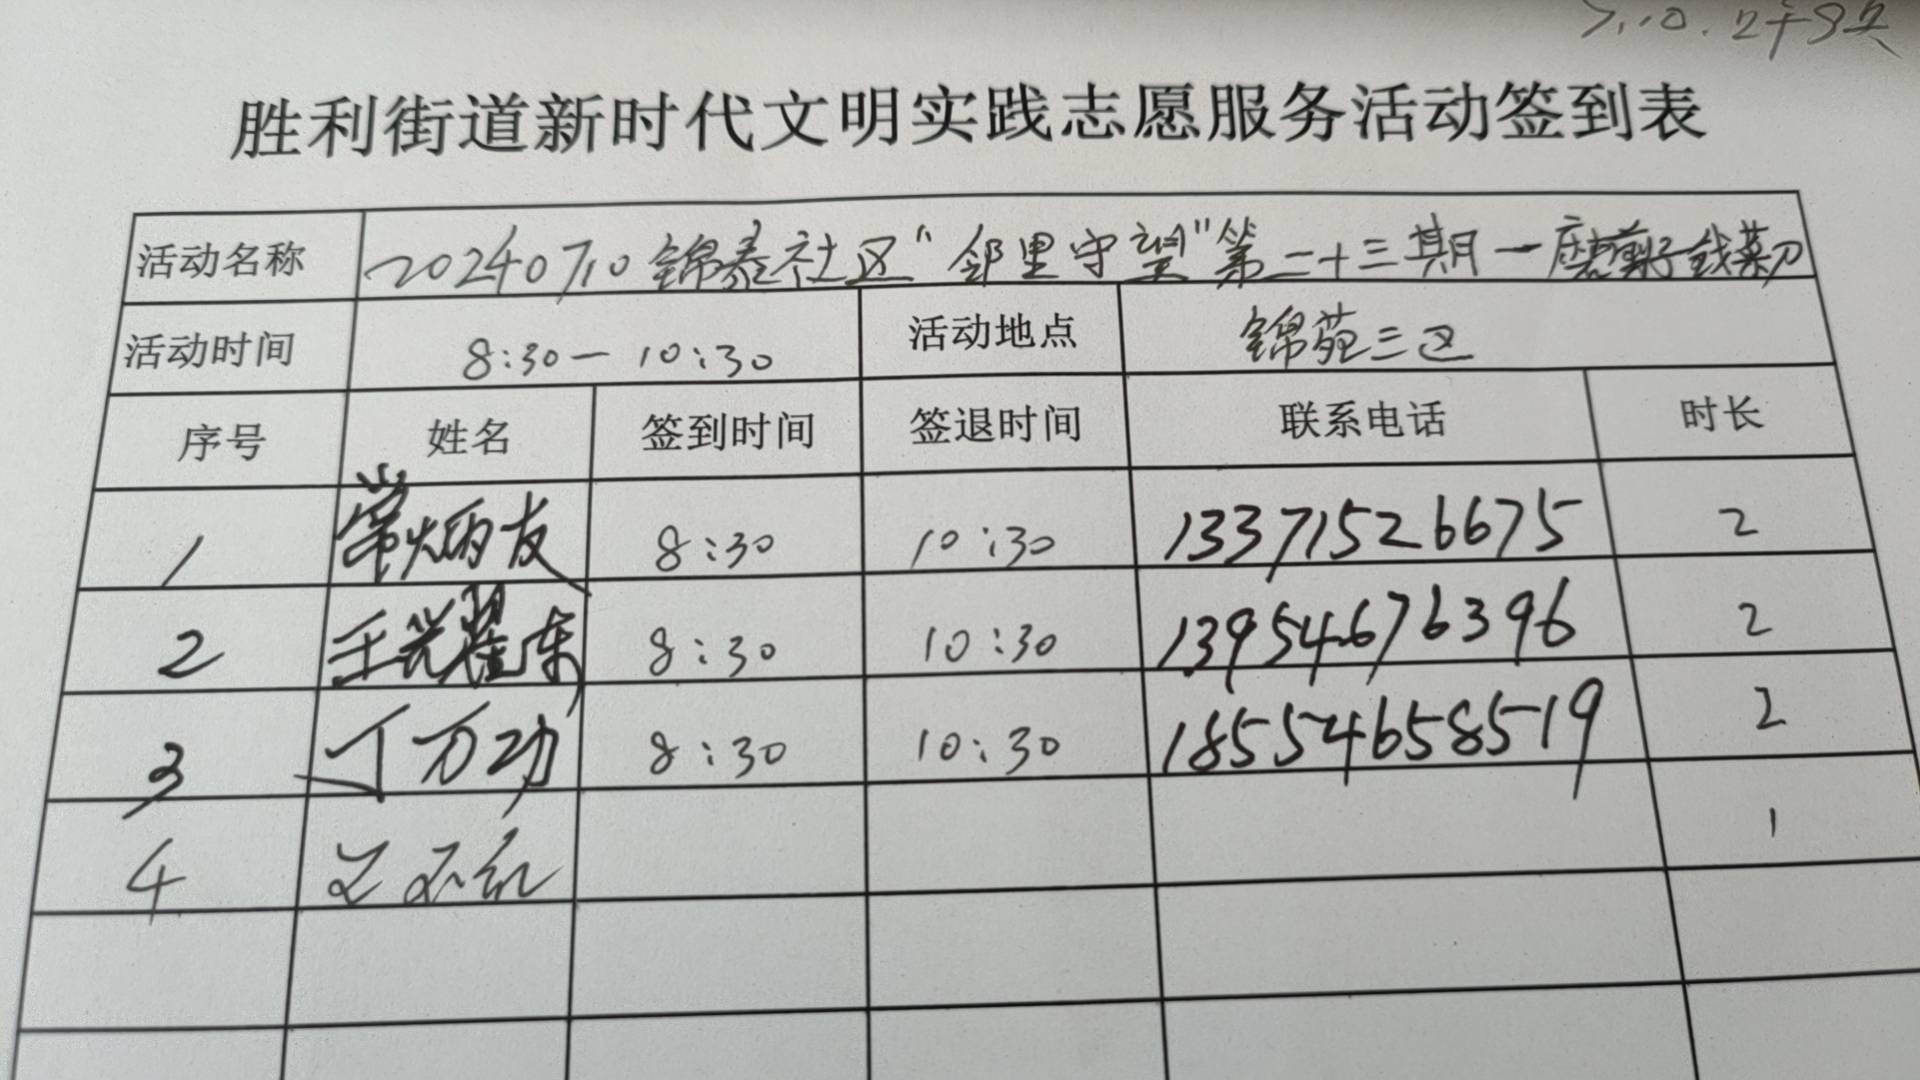 7.10.
胜利街道新时代文明实践志愿服务活动签到表
活动名称 20240710锦泰社区“邻里守望”第二十三期一磨剪子戗菜刀
活动时间 8:30一10:30 活动地点 锦苑三区
序号 姓名 签到时间 签退时间 联系电话 时长
1 常炳友 8:30 10:30 13371526675 2
2 王光耀东 8:30 10:30 13954676396 2
3 丁万功 8:30 10:30 18554658519 2
4 1